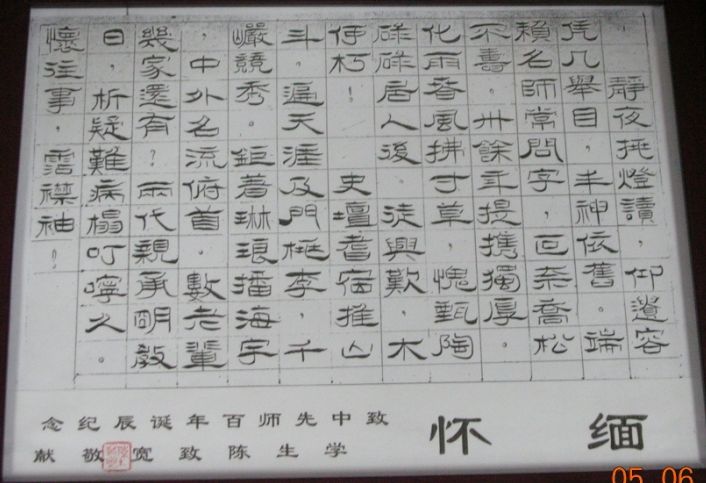 靜夜挑燈讀，仰遺容
凭几舉目，丰神依舊。端
賴名師常問字，叵奈喬松
不壽。卅餘年提攜獨厚。
化雨春風拂寸草，愧甄陶
碌碌居人後。徒興歎，木
何朽！史壇耆宿推山
斗。遍天涯及門桃李，千
巖競秀。鉅著琳琅播海宇
，中外名流俯首。數老輩
幾家還有？兩代親承明教
日，析疑難病榻叮嚀久。
懷往事，霑襟袖！
缅怀
致中先师百年诞辰纪念
学生陈致宽敬献
05 06